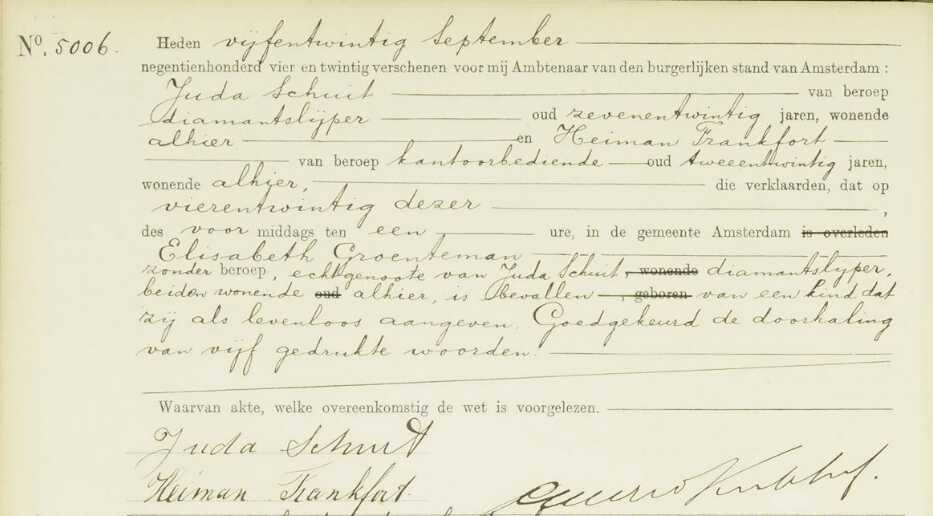 Nº. 5006.
Heden vijfentwintig September
negentienhonderd vier en twintig verschenen voor mij Ambtenaar van den burgerlijken stand van Amsterdam :
Juda Schuit van beroep
diamantslijper oud zevenentwintig jaren, wonende
alhier en Heiman Frankfort
van beroep kantoorbediende oud tweeentwintig jaren,
wonende alhier, die verklaarden, dat op
vierentwintig dezer ,
des voor middags ten een ure, in de gemeente Amsterdam is overleden
Elisabeth Groenteman
zonder beroep, echtgenoote van Juda Schuit, wonende diamantslijper,
beiden wonende oud alhier, is bevallen , geboren van een kind dat
zij als levenloos aangeven. Goedgekeurd de doorhaling
van vijf gedrukte woorden.
Waarvan akte, welke overeenkomstig de wet is voorgelezen.
Juda Schuit
Heiman Frankfort.